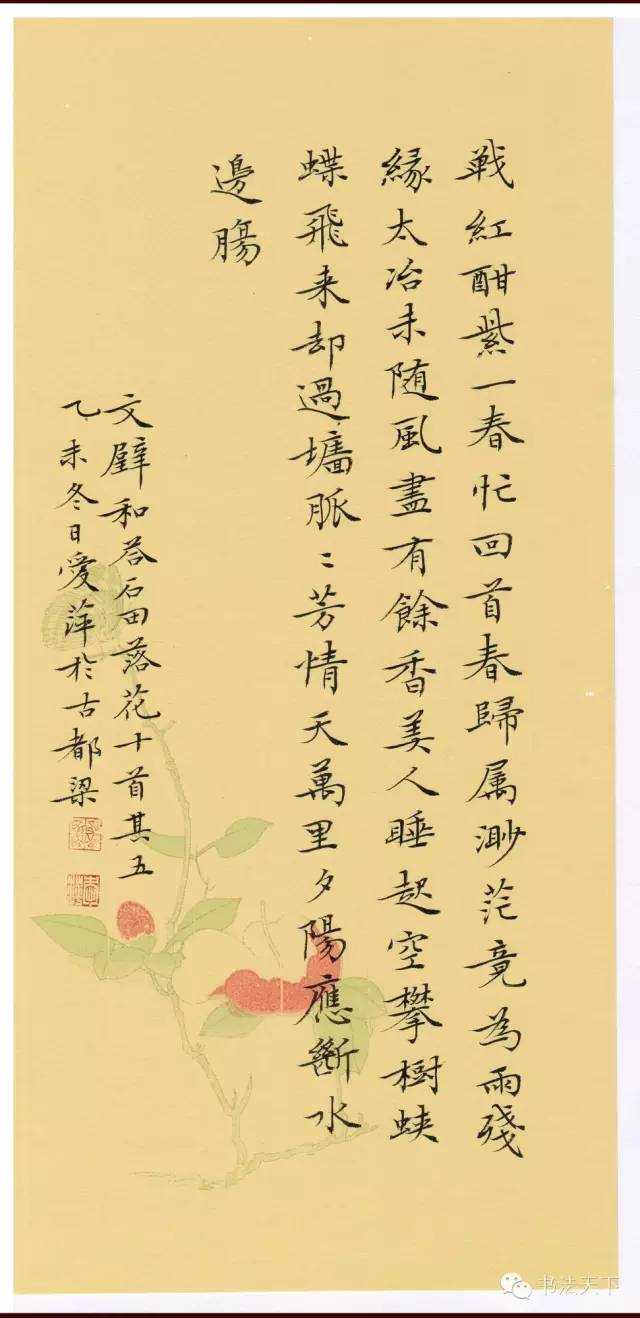 戦紅酣紫一春忙回首春歸属渺茫竟為雨殘
緣太冶未随風盡有餘香美人睡起空攀樹蛱
蝶飛来却過墻脈〻芳情天萬里夕陽應斷水
邊腸
文璧和荅石田落花十首其五
乙未冬日愛萍於古都梁
书法天下